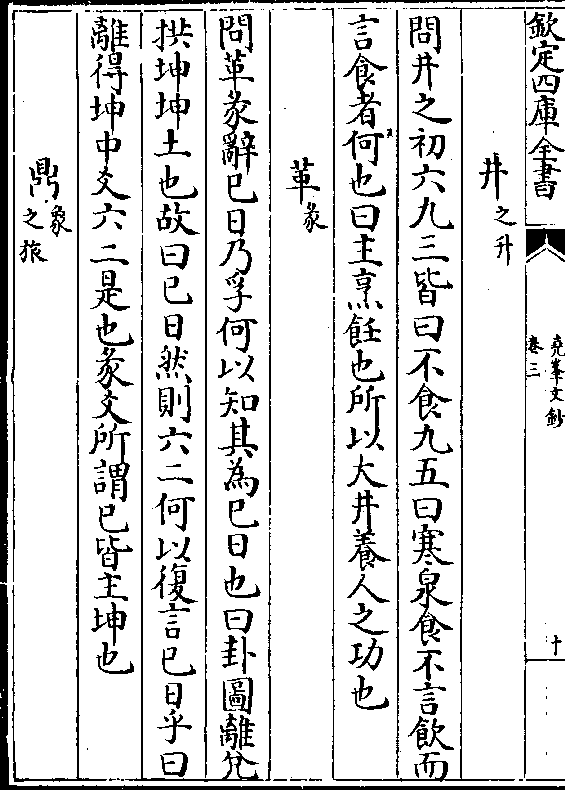 欽定四庫全書
堯峯文鈔
卷三
十
井之升
問井之初六九三皆曰不食九五曰寒泉食不言飲而
言食者何也曰主烹飪也所以大井養人之功也
革彖
問革彖辭巳日乃孚何以知其為巳日也曰卦圖離兊
拱坤坤土也故曰巳日然則六二何以復言巳日乎曰
離得坤中爻六二是也彖爻所謂巳皆主坤也
鼎彖之旅